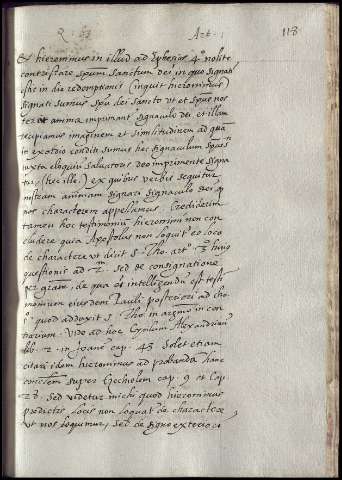 Q. 63 Art. 1 118
Et hieronimus in illud ad Ephesios 4º nolite
contristare spum sanctum dei in quo signati
estis in die redemptionis (inquit hieronimus)
signati sumus spu dei sancto ut et spus nos
ter et anima imprimant signaculo dei et illam
recipiamus imaginem et similitudinem ad quam
in exordio conditi sumus hec signaculum spus sti
iuxta eloquium salvatoris deo imprimente signa
tur (hec ille) ex quibus verbis sequitur
nostram animam signari signaculo dei q
nos characterem appellamus. Crediderim
tamen hoc testimonium hieronimi non con
cludere quia Apostolus non loquitur eo loco
de charactere ut dicit s. Tho. artº 3º huius
questionis ad m. sed de consignatione
per gram. de qua est intelligendum est testi
monium eiusdem Pauli posteriori ad cho.
quod adduxit s. Tho. in argumº in con
trarium. Vide ad hoc Cyrilum Alexandrinum
lib. 2. in Joane cap. 43 solet etiam
citari idem hieronimus ad probandam hanc
concluem super Ezechielem cap. 9 et Cap.
28 sed videtur michi quod hieronimus
predictis locis non loquatur de charactere
ut nos loquimur, sed de signo exteriori